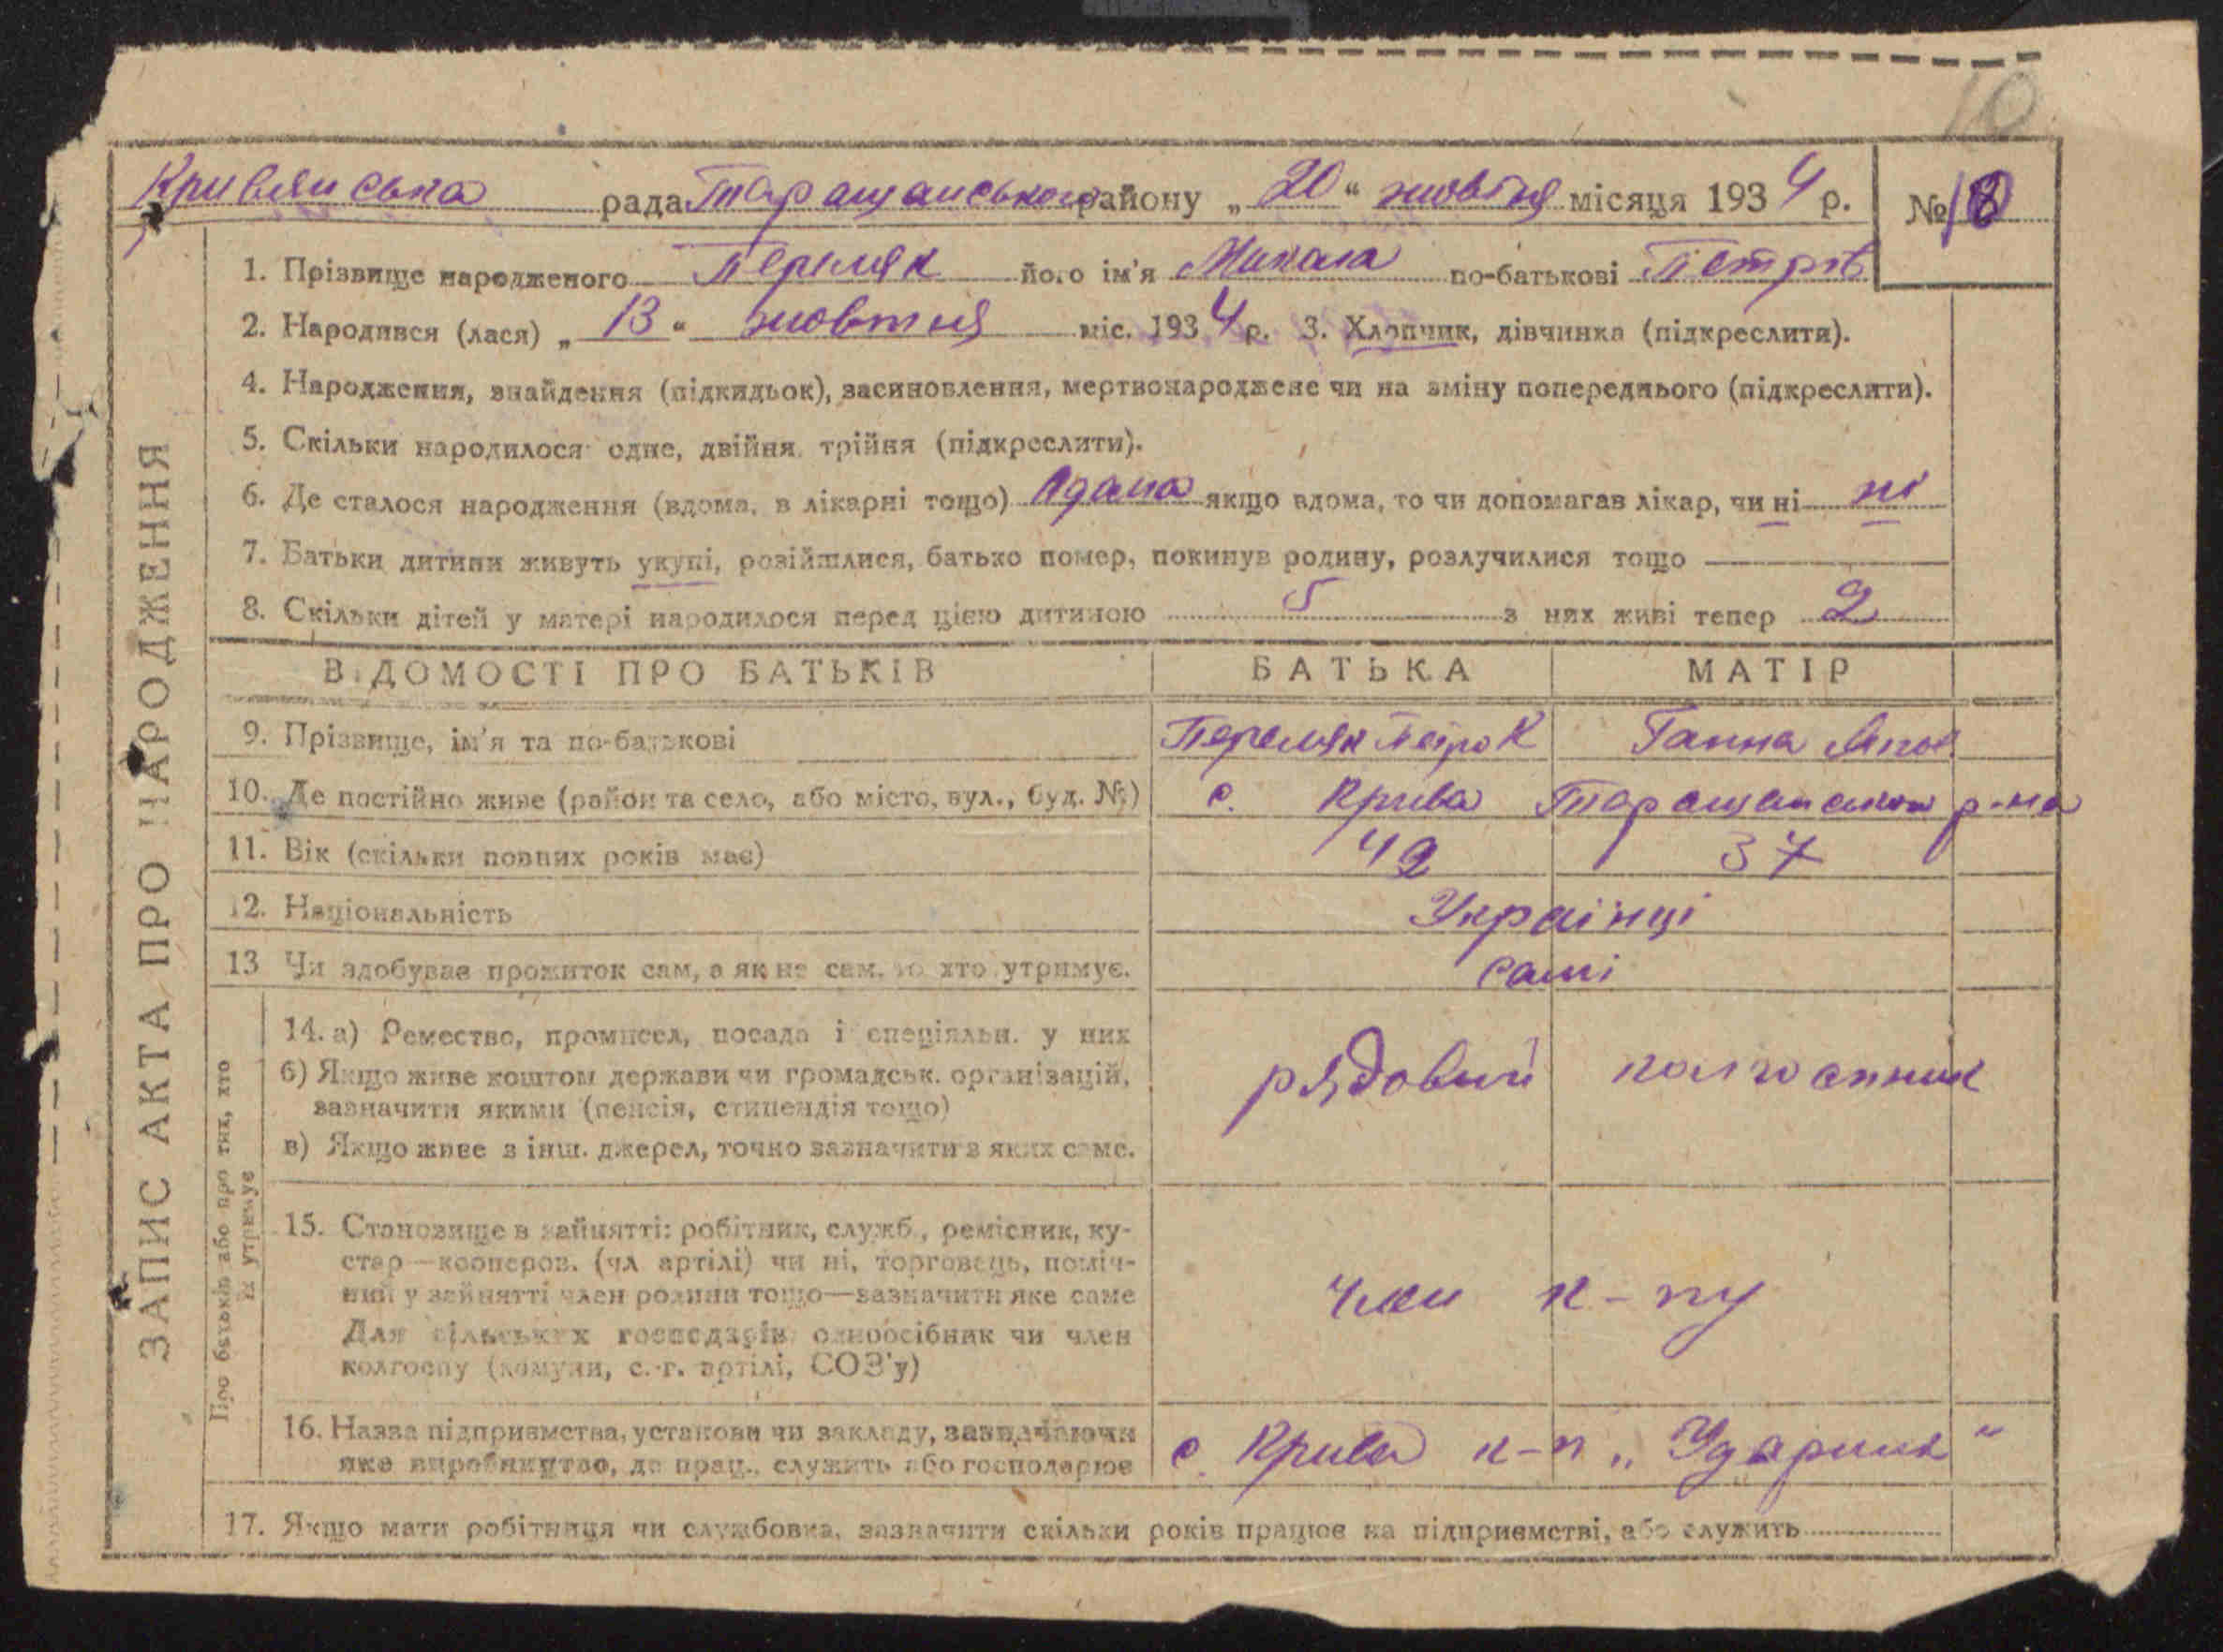 10
Кривянська рада Таращанського району „20“ жовтня місяця 1934 р. № 18
1. Прізвище народженого Перемяк його ім'я Микола по-батькові Петров
2. Народився (лася) „13“ жовтня міс. 1934 р. 3. Хлопчик, дівчинка (підкреслити).
4. Народження, знайдення (підкидьок), засиновлення, мертвонароджене чи на зміну попереднього (підкреслити).
5. Скільки народилося одне, двійня, трійня (підкреслити).
6. Де сталося народження (вдома, в лікарні тощо) якщо вдома, то чи допомагав лікар, чи ні ні
7. Батьки дитини живуть укупі, розійшлися, батько помер, покинув родину, розлучилися тощо
8. Скільки дітей у матері народилося перед цією дитиною 5 з них живі тепер 2
ВІДОМОСТІ ПРО БАТЬКІВ БАТЬКА МАТІР
9. Прізвище, ім'я та по-батькові Перемяк Петро К Ганна
10. Де постійно живе (район та село, або місто, вул., буд. №) с. Крива Таращанського р-на
11. Вік (скільки повних років має) 42 37
12. Національність Українці
13 Чи здобуває прожиток сам, а як не сам, то хто утримує. Самі
14. а) Ремество, промисел, посада і спеціяльн. у них рядовий колгоспник
б) Якщо живе коштом держави чи громадськ. організацій,
зазначити якими (пенсія, стипендія тощо)
в) Якщо живе з інш. джерел, точно зазначити з яких саме.
15. Становище в зайнятті: робітник, служб., ремісник, ку-
стар—коопероз. (чл артілі) чи ні, торговець, поміч-
ний у зайнятті член родини тощо—зазначити яке саме член к-пу
Для сільських господарів одноосібник чи член
колгоспу (комуни, с.-г. артілі, СОЗ'у)
16. Назва підприємства, установи чи закладу, зазначаючи
яке виробництво, де прац., служить або господарює с. Крива к-п „Ударник“
17. Якщо мати робітниця чи службовка, зазначити скільки років працює на підприємстві, або служить
ЗАПИС АКТА ПРО НАРОДЖЕННЯ
Про батьків або про тих, хто
їх утримує